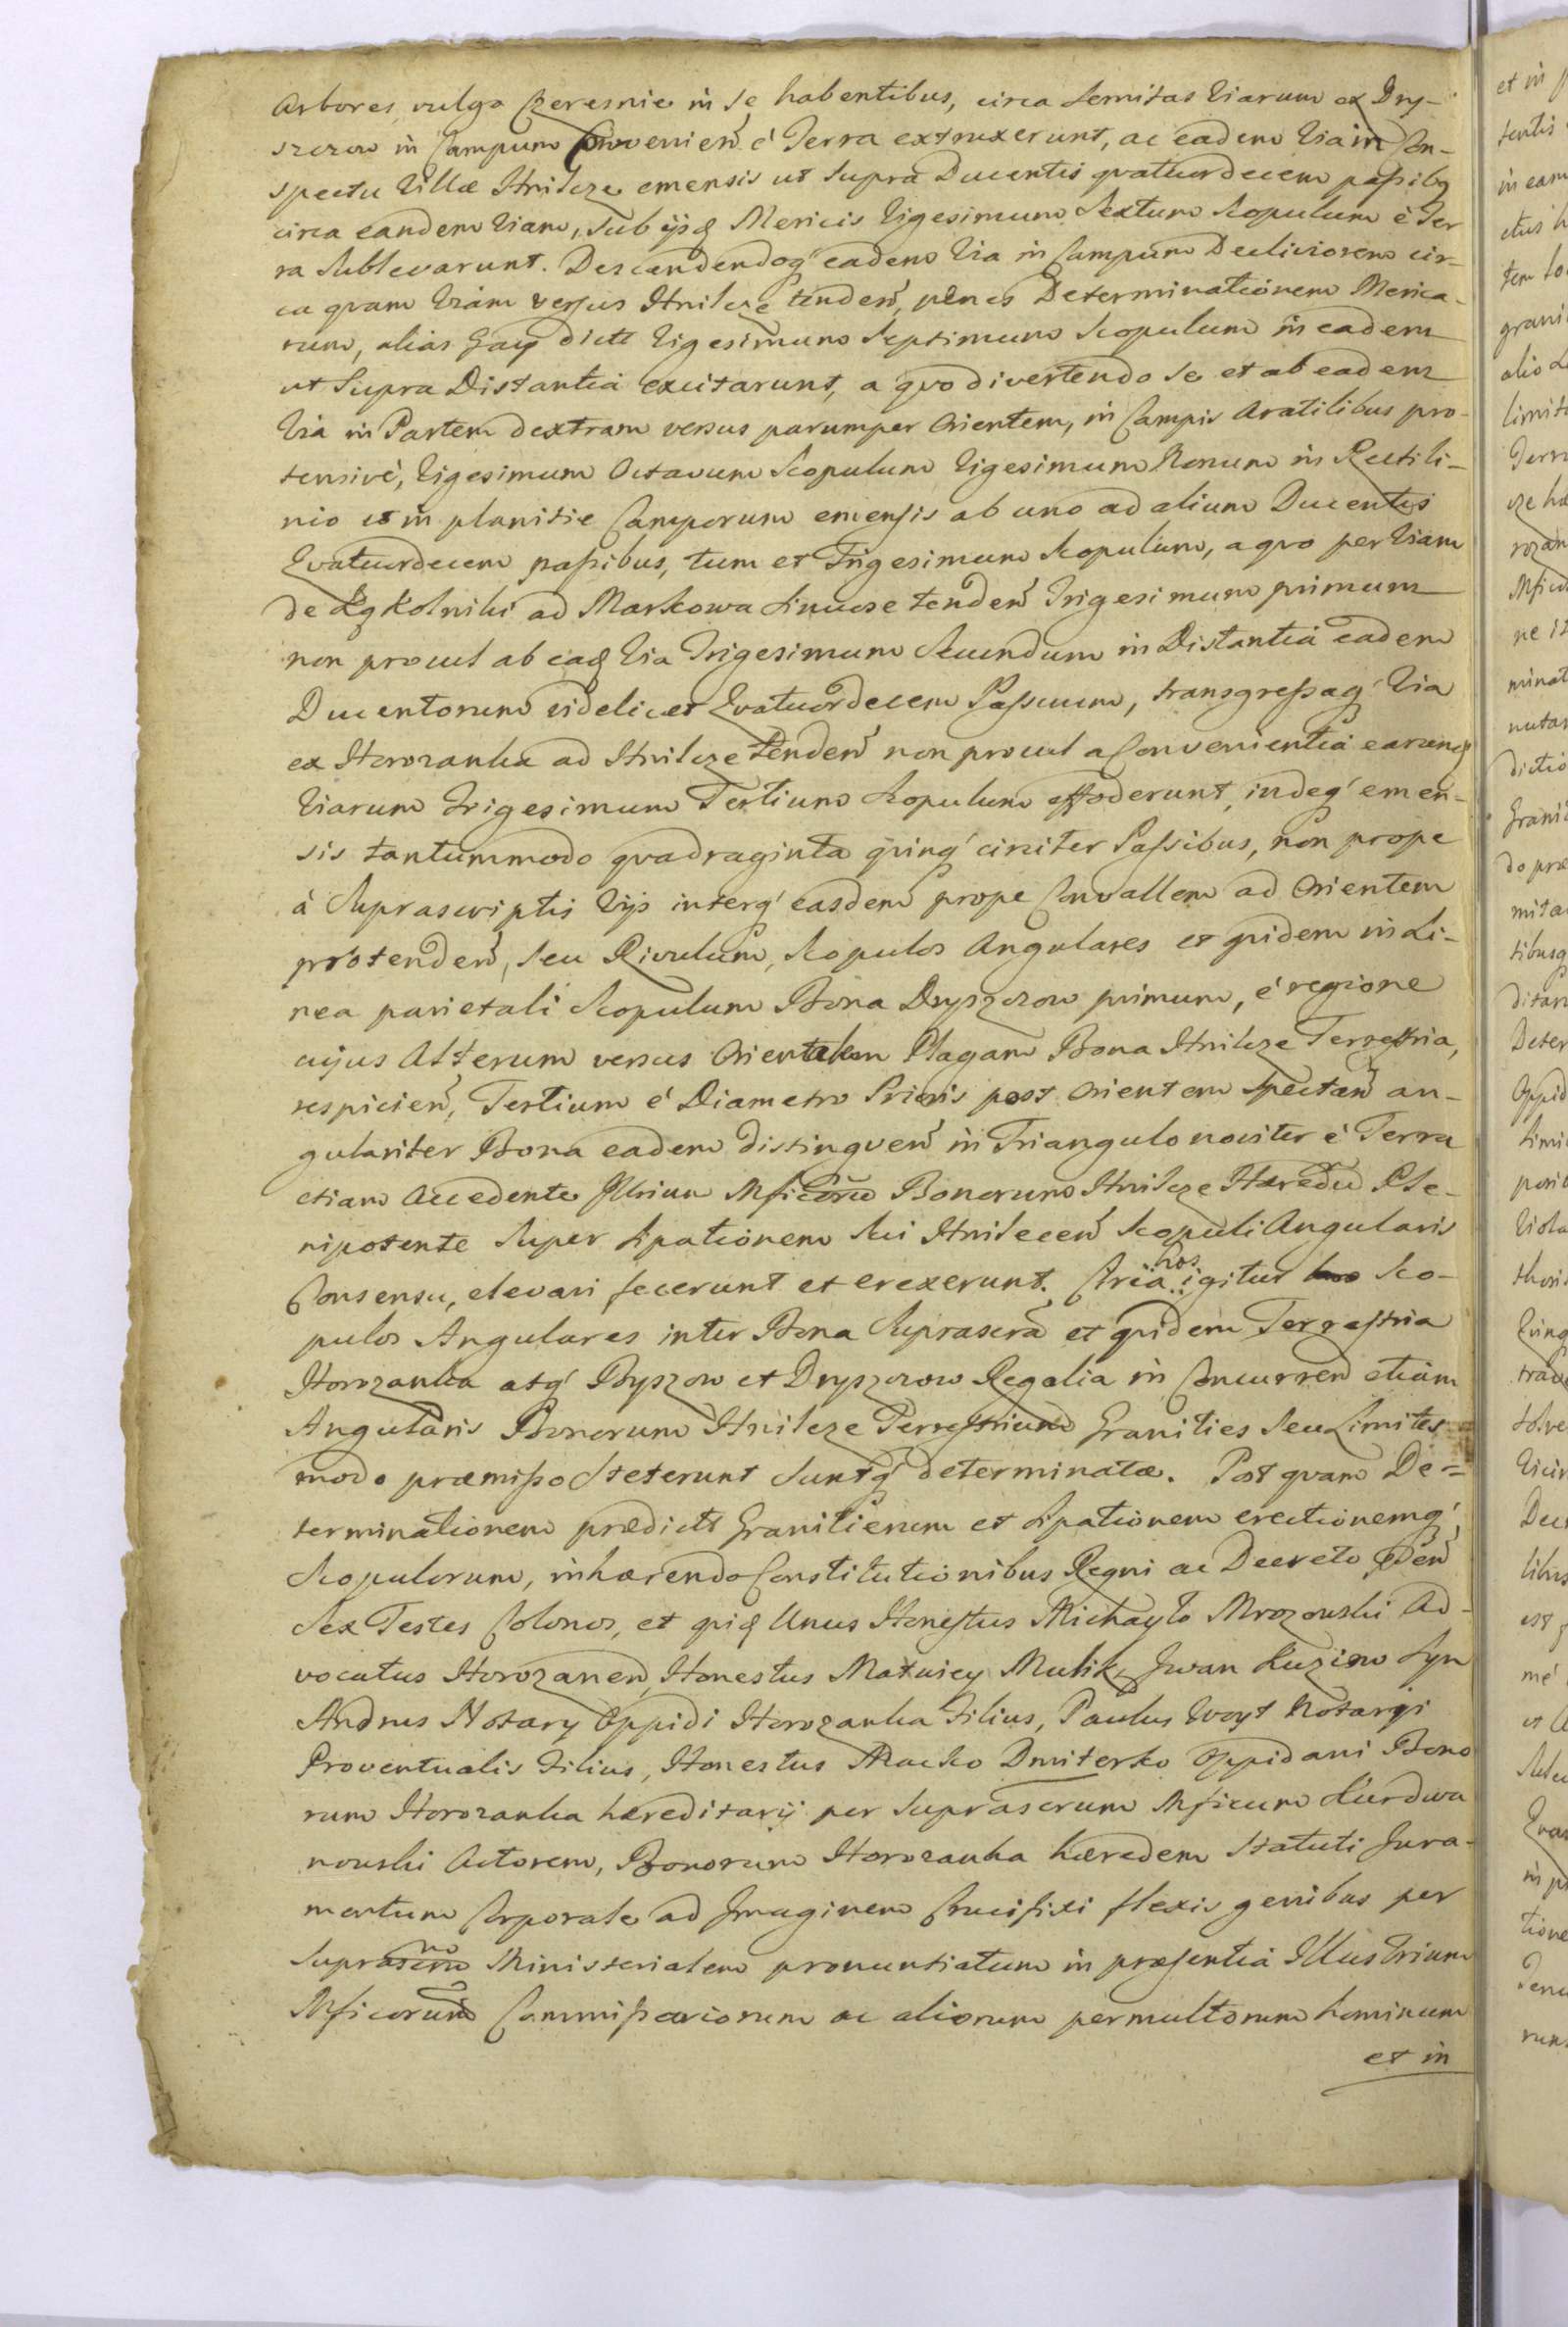 Arbores, vulgo Czeresnie in se habentibus, circa Semitas Viarum ex Dry-
szczow in Campum Convenieñ è Terra extruxerunt, ac eadem Via in Con-
spectu Villæ Hnilcze emensis ut supra Ducentis quatuordecem passibq
circa eandem Viam, sub ijsq Mericis Vigesimum Sextum Scopulum è Ter
ra sublevarunt. Descendendoq' eadem Via in Campum Decliviorem cir-
ca quam Viam versus Hnilcze tendeñ, penes Determinationem Merica-
rum, alias Gay dict Vigesimum Septimum Scopulum in eadem
ut Supra Distantia excitarunt, a quo divertendo se et ab eadem
Via in Partem dextram versus parumper Orientem, in Campis Aratilibus pro-
tensivè, Vigesimum Octavum Scopulum Vigesimum Nonum in Rectili-
nio et in planitie Camporum emensis ab uno ad alium Ducentis
Quatuordecem passibus, tum et Trigesimum Scopulum, a quo per Viam
de ad Markowa Sinuose tendeñ Trigesimum primum
non procul ab eaq Via Trigesimum Secundum in Distantia eadem
Ducentorum videlicet Quatuordecem Passuum, transgressaq' Via
ex Horozanka ad Hnilcze tendeñ non procul a Convenientia earumq
Viarum Trigesimum Tertium Scopulum effoderunt, indeq' emen-
sis tantummodo quadraginta quinq' circiter Passibus, non prope
à Suprascriptis Vijs interq' easdem prope Convallem ad Orientem
protendeñ, seu Rivulum, Scopulos Angulares et quidem in Li-
nea parietali Scopulum Bona Dryszczow primum, è regione
cujus Alterum versus Orientalem Plagam Bona Hnilcze Terrestria,
respicieñ, Tertium è Diametro Prioris post Orientem Spectañ an-
gulariter Bona eadem distingveñ in Triangulo noviter è Terra
etiam Accedente Illrium Mficorum Bonorum Hnilcze Hæredu Ple-
nipotente Super Sipationem Sui Hnilceceñ Scopuli Angularis
Consensu, elevari fecerunt et erexerunt. Circa hos igitur Sco-
pulos Angulares inter Bona Suprascra et quidem Terrestria
Horozanka atq' Byszow et Dryszczow Regalia in Concurreñ etiam
Angularis Bonorum Hnilcze Terrestrium Granities seu Limites
modo præmisso steterunt suntq' determinatæ. Post quam De=
terminationem prædict Granitierum et Sipationem erectionemq'
Scopulorum, inhærendo Constitutionibus Regni ac Decreto
Sex Testes Colonos, et quiq Unus Honestus Michayło Mrozowski Ad-
vocatus Horozaneñ, Honestus Matwiey Mulik, Jwan Kuziow Syn
Andrus Notary Oppidi Horozanka Filius, Paulus Woyt Notarij
Proventualis Filius, Honestus Macko Dmiterko Oppidani Bono
rum Horozanka hæreditarij per Suprascrum Mficum Kurdwa
nowski Actorem, Bonorum Horozanka hæredem Statuti Jura-
mentum Corporale ad Jmaginem Crucifixi flexis genibus per
Suprascrm Ministerialem pronuntiatum in præsentia Illustrium
Mficorum Commissariorum ac aliorum permultorum hominum
et in